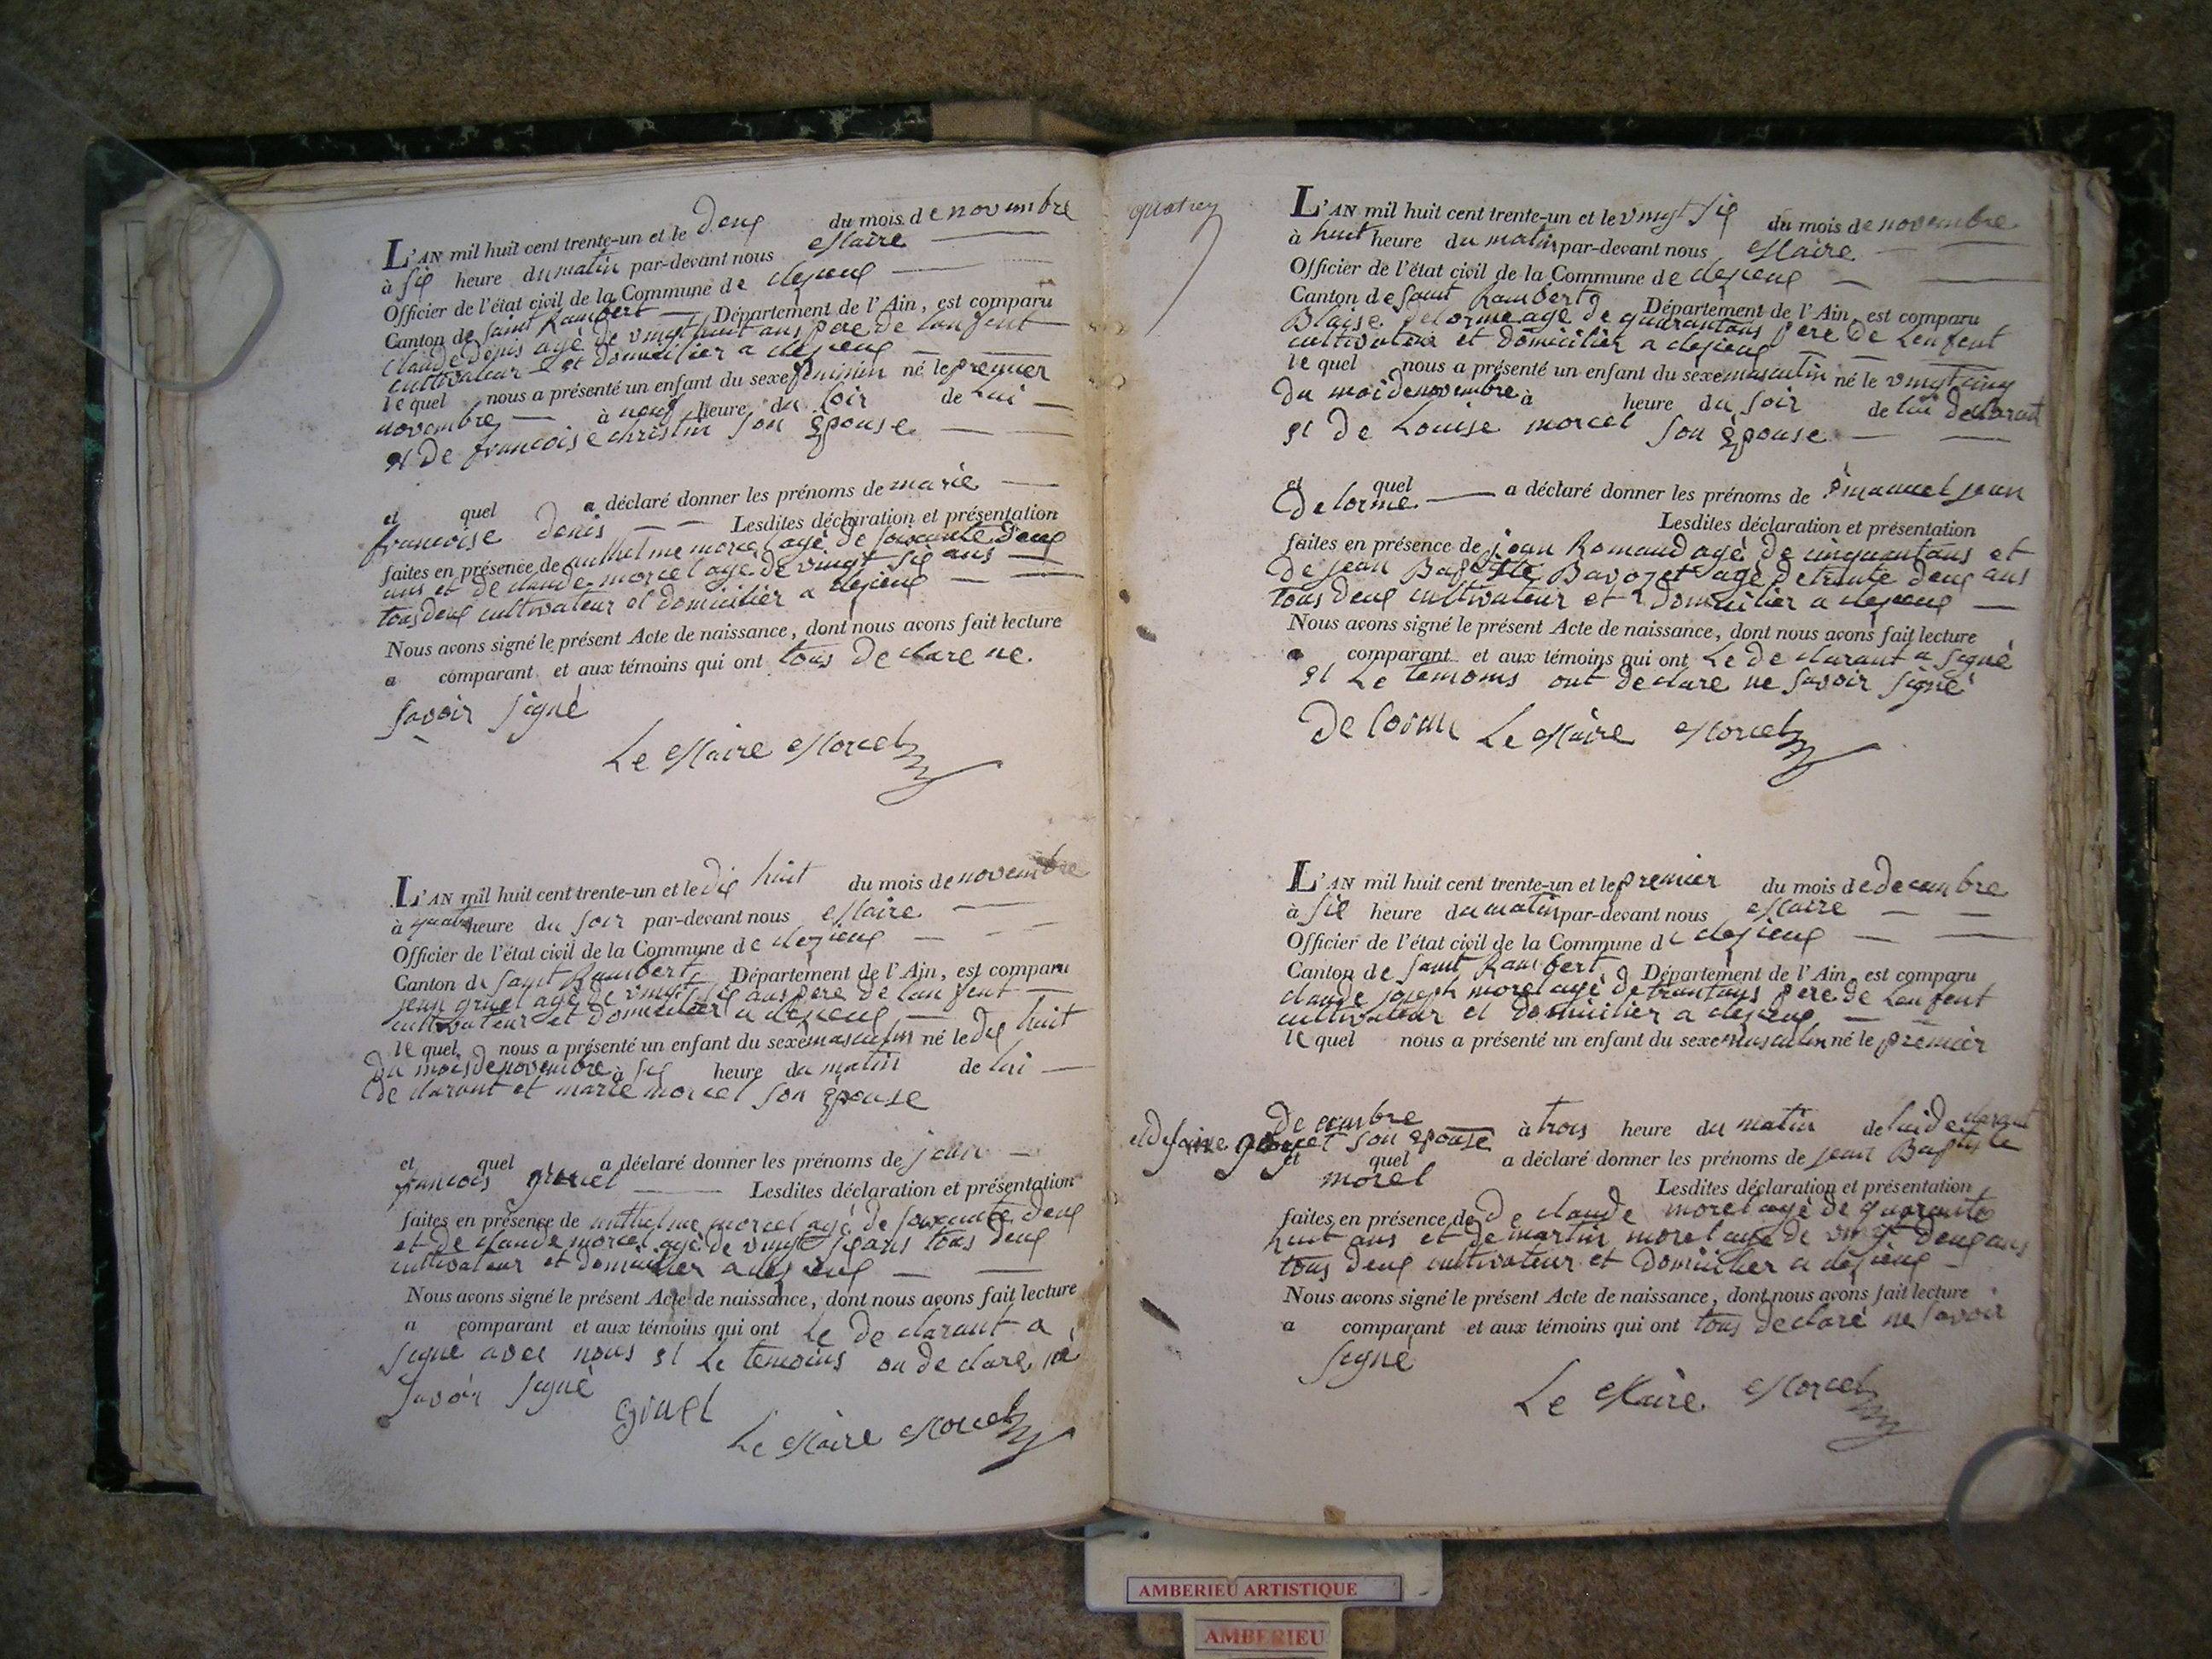 L'AN mil huit cent trente-un et le deux du mois de novembre
à six heure du matin par-devant nous Maire
Officier de l'état civil de la Commune de clezieux
Canton de Saint Rambert Département de l'Ain, est comparu
Claude denis agé de vingt huit ans pere de lanfent
cultivateur et domicilier a clezieux
lequel nous a présenté un enfant du sexe feminin né le premier
novembre à neuf heure du soir de lui
et de francoise christin son épouse
et quel a déclaré donner les prénoms de marie
francoise denis Lesdites déclaration et présentation
faites en présence de anthelme morcel agé de soixante deux
ans et de claude morcel agé de vingt six ans
tous deux cultivateur et domicilier a clezieux
Nous avons signé le présent Acte de naissance, dont nous avons fait lecture
a comparant et aux témoins qui ont tous declare ne
savoir signé
Le Maire Morcel
L'AN mil huit cent trente-un et le dix huit du mois de novembre
à quatre heure du soir par-devant nous Maire
Officier de l'état civil de la Commune de clezieux
Canton de Saint Rambert Département de l'Ain, est comparu
jean gruel agé de vingt six ans pere de lanfent
cultivateur et domicilier a clezieux
lequel nous a présenté un enfant du sexe masculin né le dix huit
du mois de novembre à six heure du matin de lui
declarant et marie morcel son épouse
et quel a déclaré donner les prénoms de jean
francois gruel Lesdites déclaration et présentation
faites en présence de anthelme morcel agé de soixante deux
et de claude morcel agé de vingt six ans tous deux
cultivateur et domicilier a clezieux
Nous avons signé le présent Acte de naissance, dont nous avons fait lecture
a comparant et aux témoins qui ont le declarant a
signe avec nous et le temoins on declare ne
savoir signé
gruel
Le Maire Morcel
L'AN mil huit cent trente-un et le vingt six du mois de novembre
à huit heure du matin par-devant nous Maire
Officier de l'état civil de la Commune de clezieux
Canton de Saint Rambert Département de l'Ain, est comparu
Blaise Delorme agé de quarantans pere de Lenfent
cultivateur et domicilier a clezieux
lequel nous a présenté un enfant du sexe masculin né le vingt cinq
du moi de novembre à heure du soir de lui declarant
et de Louise morcel son épouse
et quel a déclaré donner les prénoms de émanuel jean
Delorme Lesdites déclaration et présentation
faites en présence de jean Romand agé de cinquantans et
de jean Baptiste Bavozet agé de trente deux ans
tous deux cultivateur et domicilier a clezieux
Nous avons signé le présent Acte de naissance, dont nous avons fait lecture
a comparant et aux témoins qui ont Le declarant a signé
et Le temoins ont declare ne savoir signé
De lorme Le Maire Morcel
L'AN mil huit cent trente-un et le premier du mois de decembre
à six heure du matin par-devant nous Maire
Officier de l'état civil de la Commune de clezieux
Canton de Saint Rambert Département de l'Ain, est comparu
claude joseph morel agé de trantans pere de Lenfent
cultivateur et domicilier a clezieux
lequel nous a présenté un enfant du sexe masculin né le premier
decembre à trois heure du matin de lui declarant
son epouse
et quel a déclaré donner les prénoms de jean Baptiste
morel Lesdites déclaration et présentation
faites en présence de de claude morel agé de quarante
huit ans et de martin morel agé de vingt deux ans
tous deux cultivateur et domicilier a clezieux
Nous avons signé le présent Acte de naissance, dont nous avons fait lecture
a comparant et aux témoins qui ont tous declaré ne savoir
signé
Le Maire Morcel
AMBERIEU ARTISTIQUE
AMBERIEU